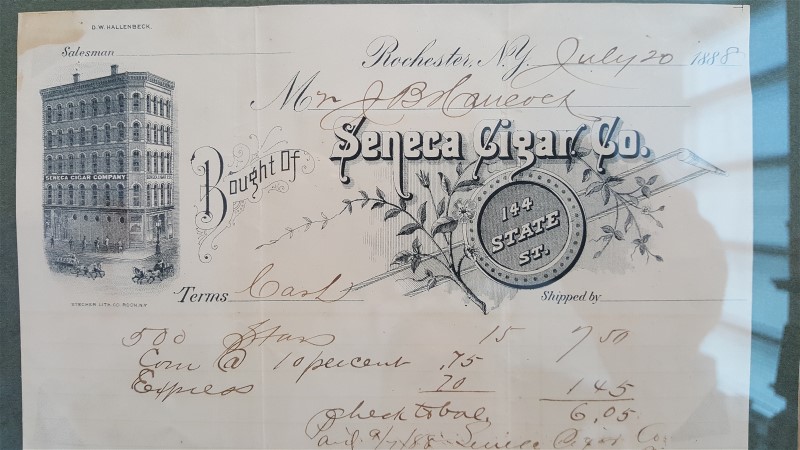 D.W. HALLENBECK.
Salesman
Rochester, N.Y. July 20 1888
Mr J B Hancock
Bought Of Seneca Cigar Co.
SENECA CIGAR COMPANY
144
STATE
ST.
STECHER LITH. CO. ROCH. N.Y.
Terms Cash Shipped by
500 Stars 15 7 50
Com @ 10 percent .75
Express 70 1 45
Check to bal. 6.05
Seneca Cigar Co.